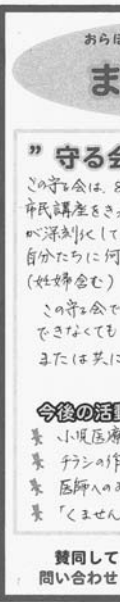 おらほ
ま
” 守る会
この守る会は、8
市民講座をき
が深刻化して
自分たちに何
(妊婦含む)
この守る会で
できなくても
または共に
今後の活動
小児医療
チラシの作
医師へのお
「くません
賛同して
問い合わせ